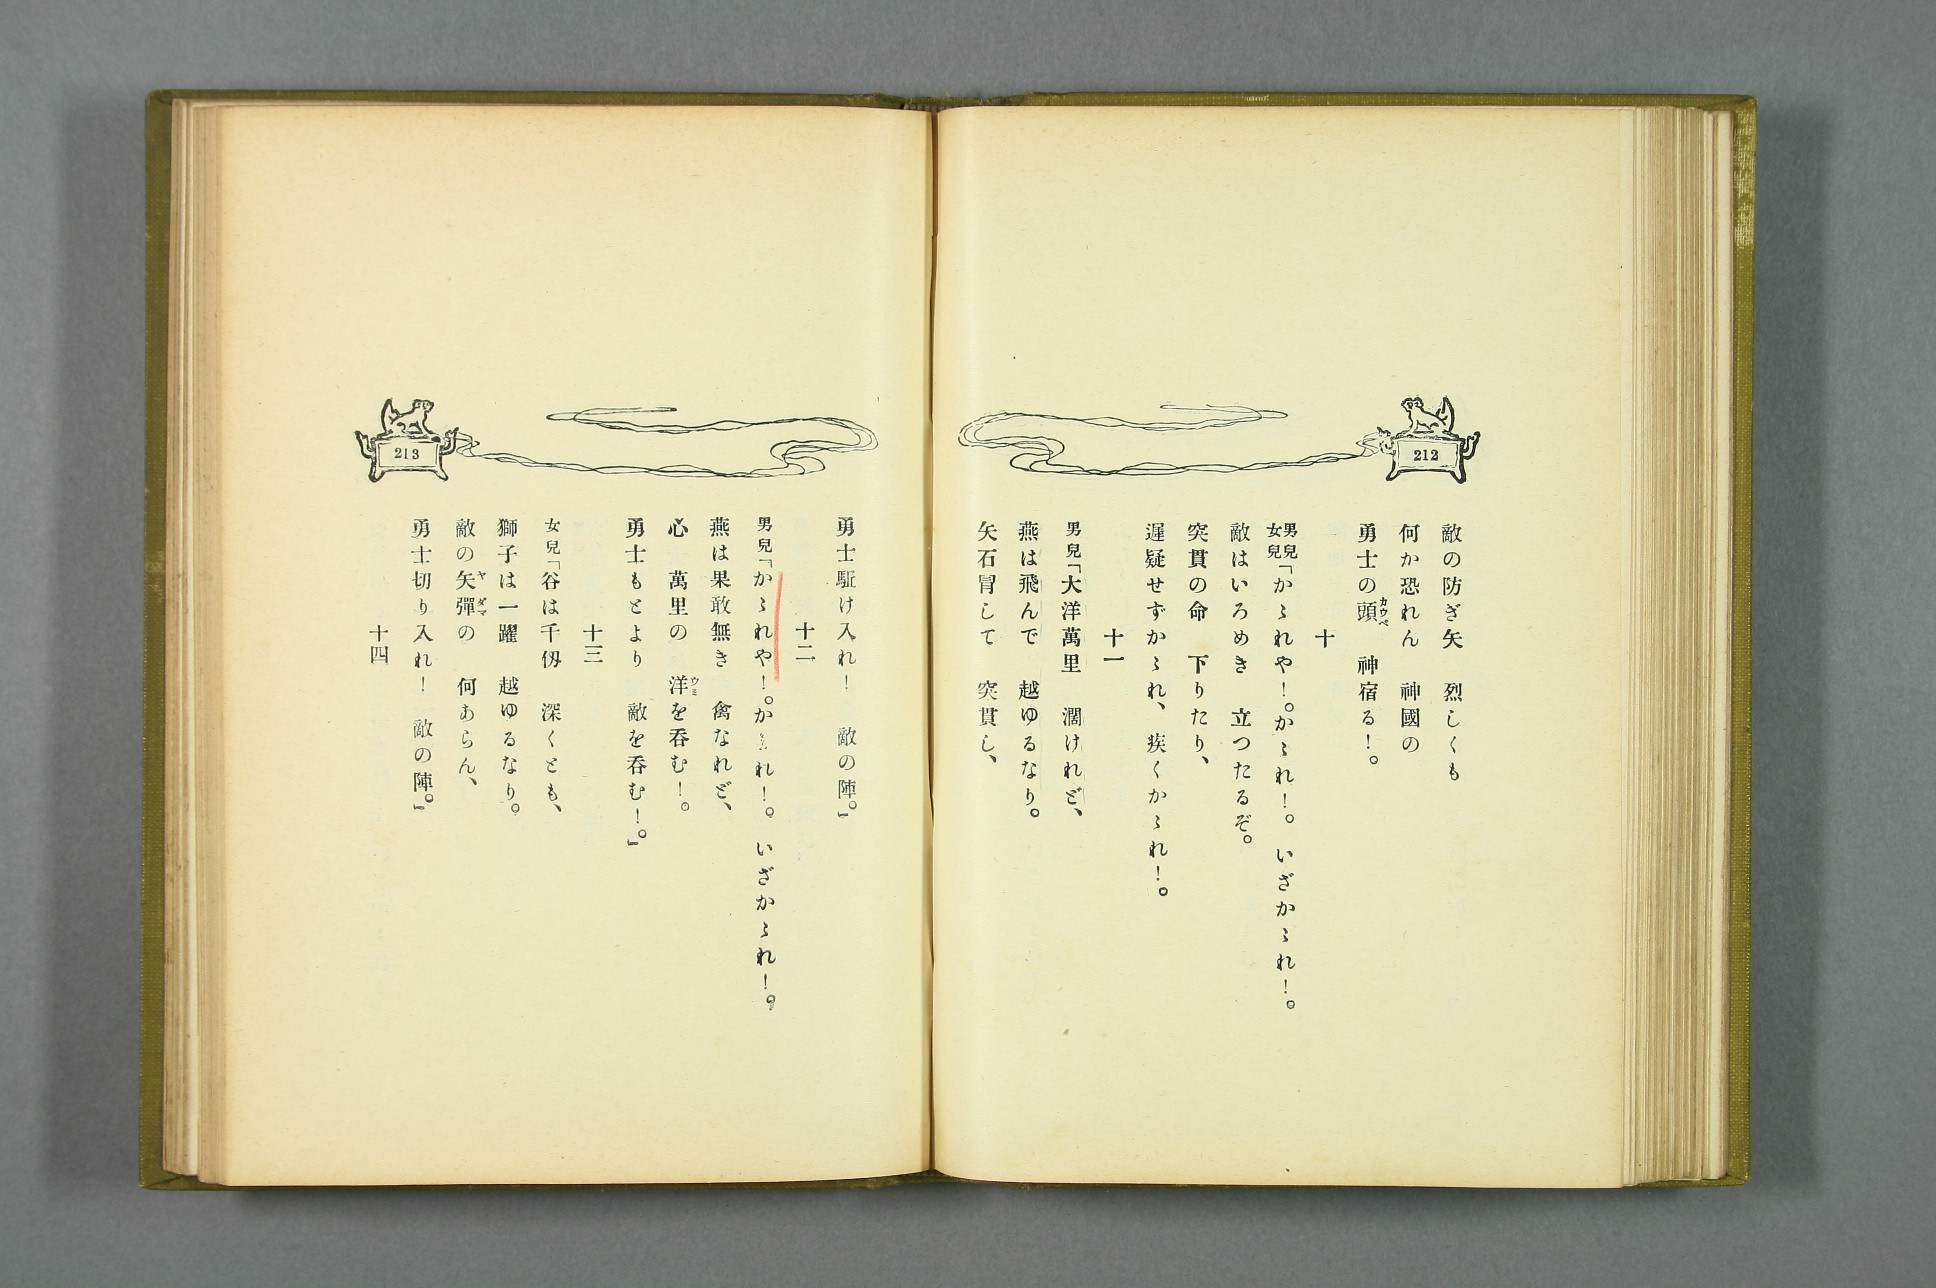 212
敵の防ぎ矢　烈しくも
何か恐れん　神國の
勇士の頭　神宿る！。
カウベ
十
男兒女兒「かゝれや！。かゝれ！。いざかゝれ！。
敵はいろめき　立つたるぞ。
突貫の命　下りたり、
遲疑せずかゝれ、疾くかゝれ！。
十一
男兒「大洋萬里　濶けれど、
燕は飛んで　越ゆるなり。
矢石冒して　突貫し、
213
勇士駈け入れ！　敵の陣。」
十二
男兒「かゝれや！。かゝれ！。いざかゝれ！。
燕は果敢無き　禽なれど、
心　萬里の　洋を呑む！。
ウミ
勇士もとより　敵を呑む！。」
十三
女兒「谷は千仭　深くとも、
獅子は一躍　越ゆるなり。
敵の矢彈の　何あらん、
ヤダマ
勇士切り入れ！　敵の陣。」
十四